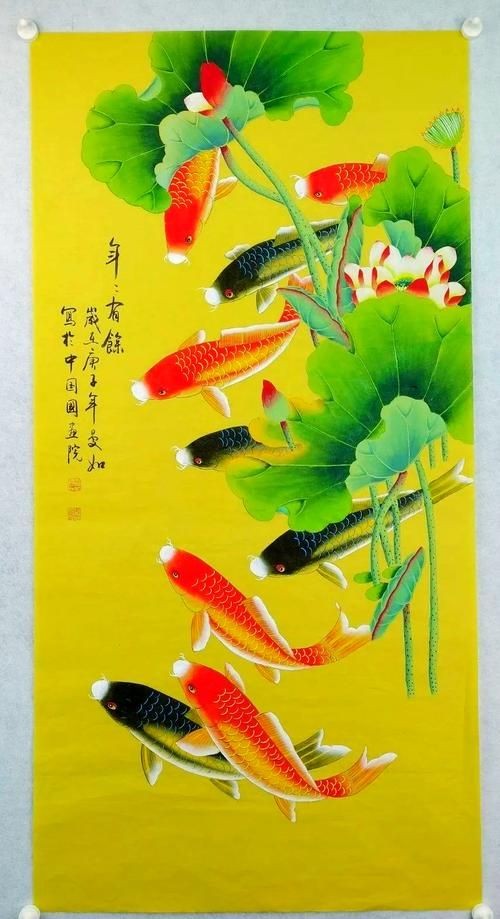 年：有餘
歲在庚子年曼如
寫於中国國画院